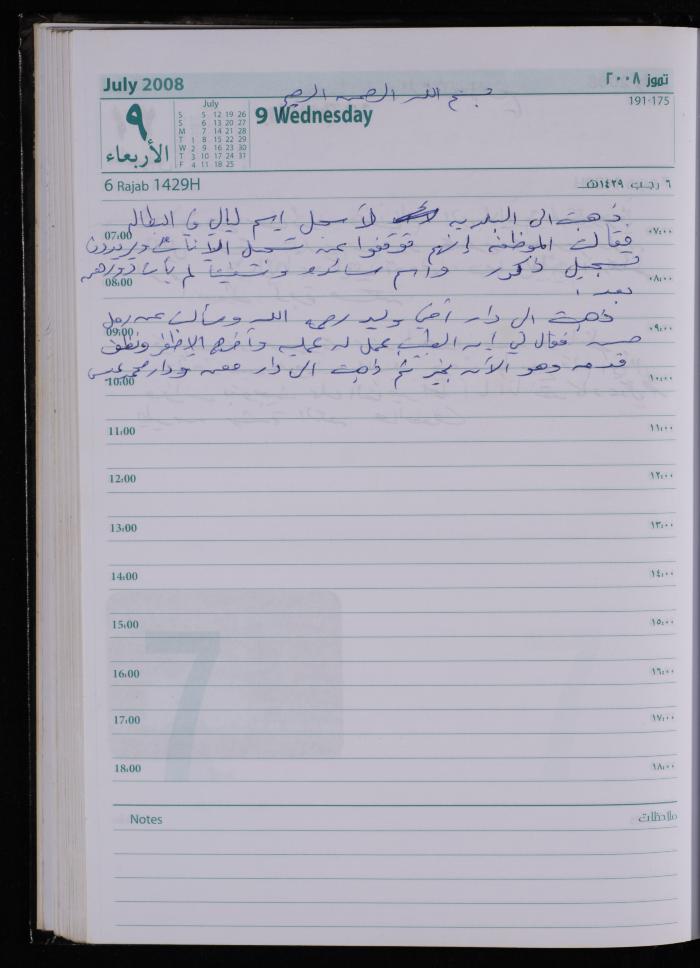 July 2008 تموز ٢٠٠٨
بسم الله الرحمن الرحيم
191-175
July
S 5 12 19 26
S 6 13 20 27
M 7 14 21 28
T 1 8 15 22 29
W 2 9 16 23 30
T 3 10 17 24 31
F 4 11 18 25
٩
الأربعاء
9 Wednesday
6 Rajab 1429H ٦ رجب ١٤٢٩هـ
ذهبت الى البلديه لأسجل اسم ليال في البطاله
07:00 ٠٧:٠٠
فقالت الموظفه إنهم توقفوا عن تسجيل الاناث ويريدون
تسجيل ذكور واسم ساندي ونشيتا لم يأت دورهم
08:00 ٠٨:٠٠
بعد.
ذهبت الى دار أخي وليد رحمه الله وسألت عن رجل
09:00 ٠٩:٠٠
حسن فقال لي إن الطبيب عمل له عمليه وأخرج الإظفر ونظف
قدمه وهو الآن بخير ثم ذهبت الى دار معن ودار محمد عيسى
10:00 ١٠:٠٠
11:00 ١١:٠٠
12:00 ١٢:٠٠
13:00 ١٣:٠٠
14:00 ١٤:٠٠
15:00 ١٥:٠٠
16:00 ١٦:٠٠
17:00 ١٧:٠٠
18:00 ١٨:٠٠
7
Notes ملاحظات